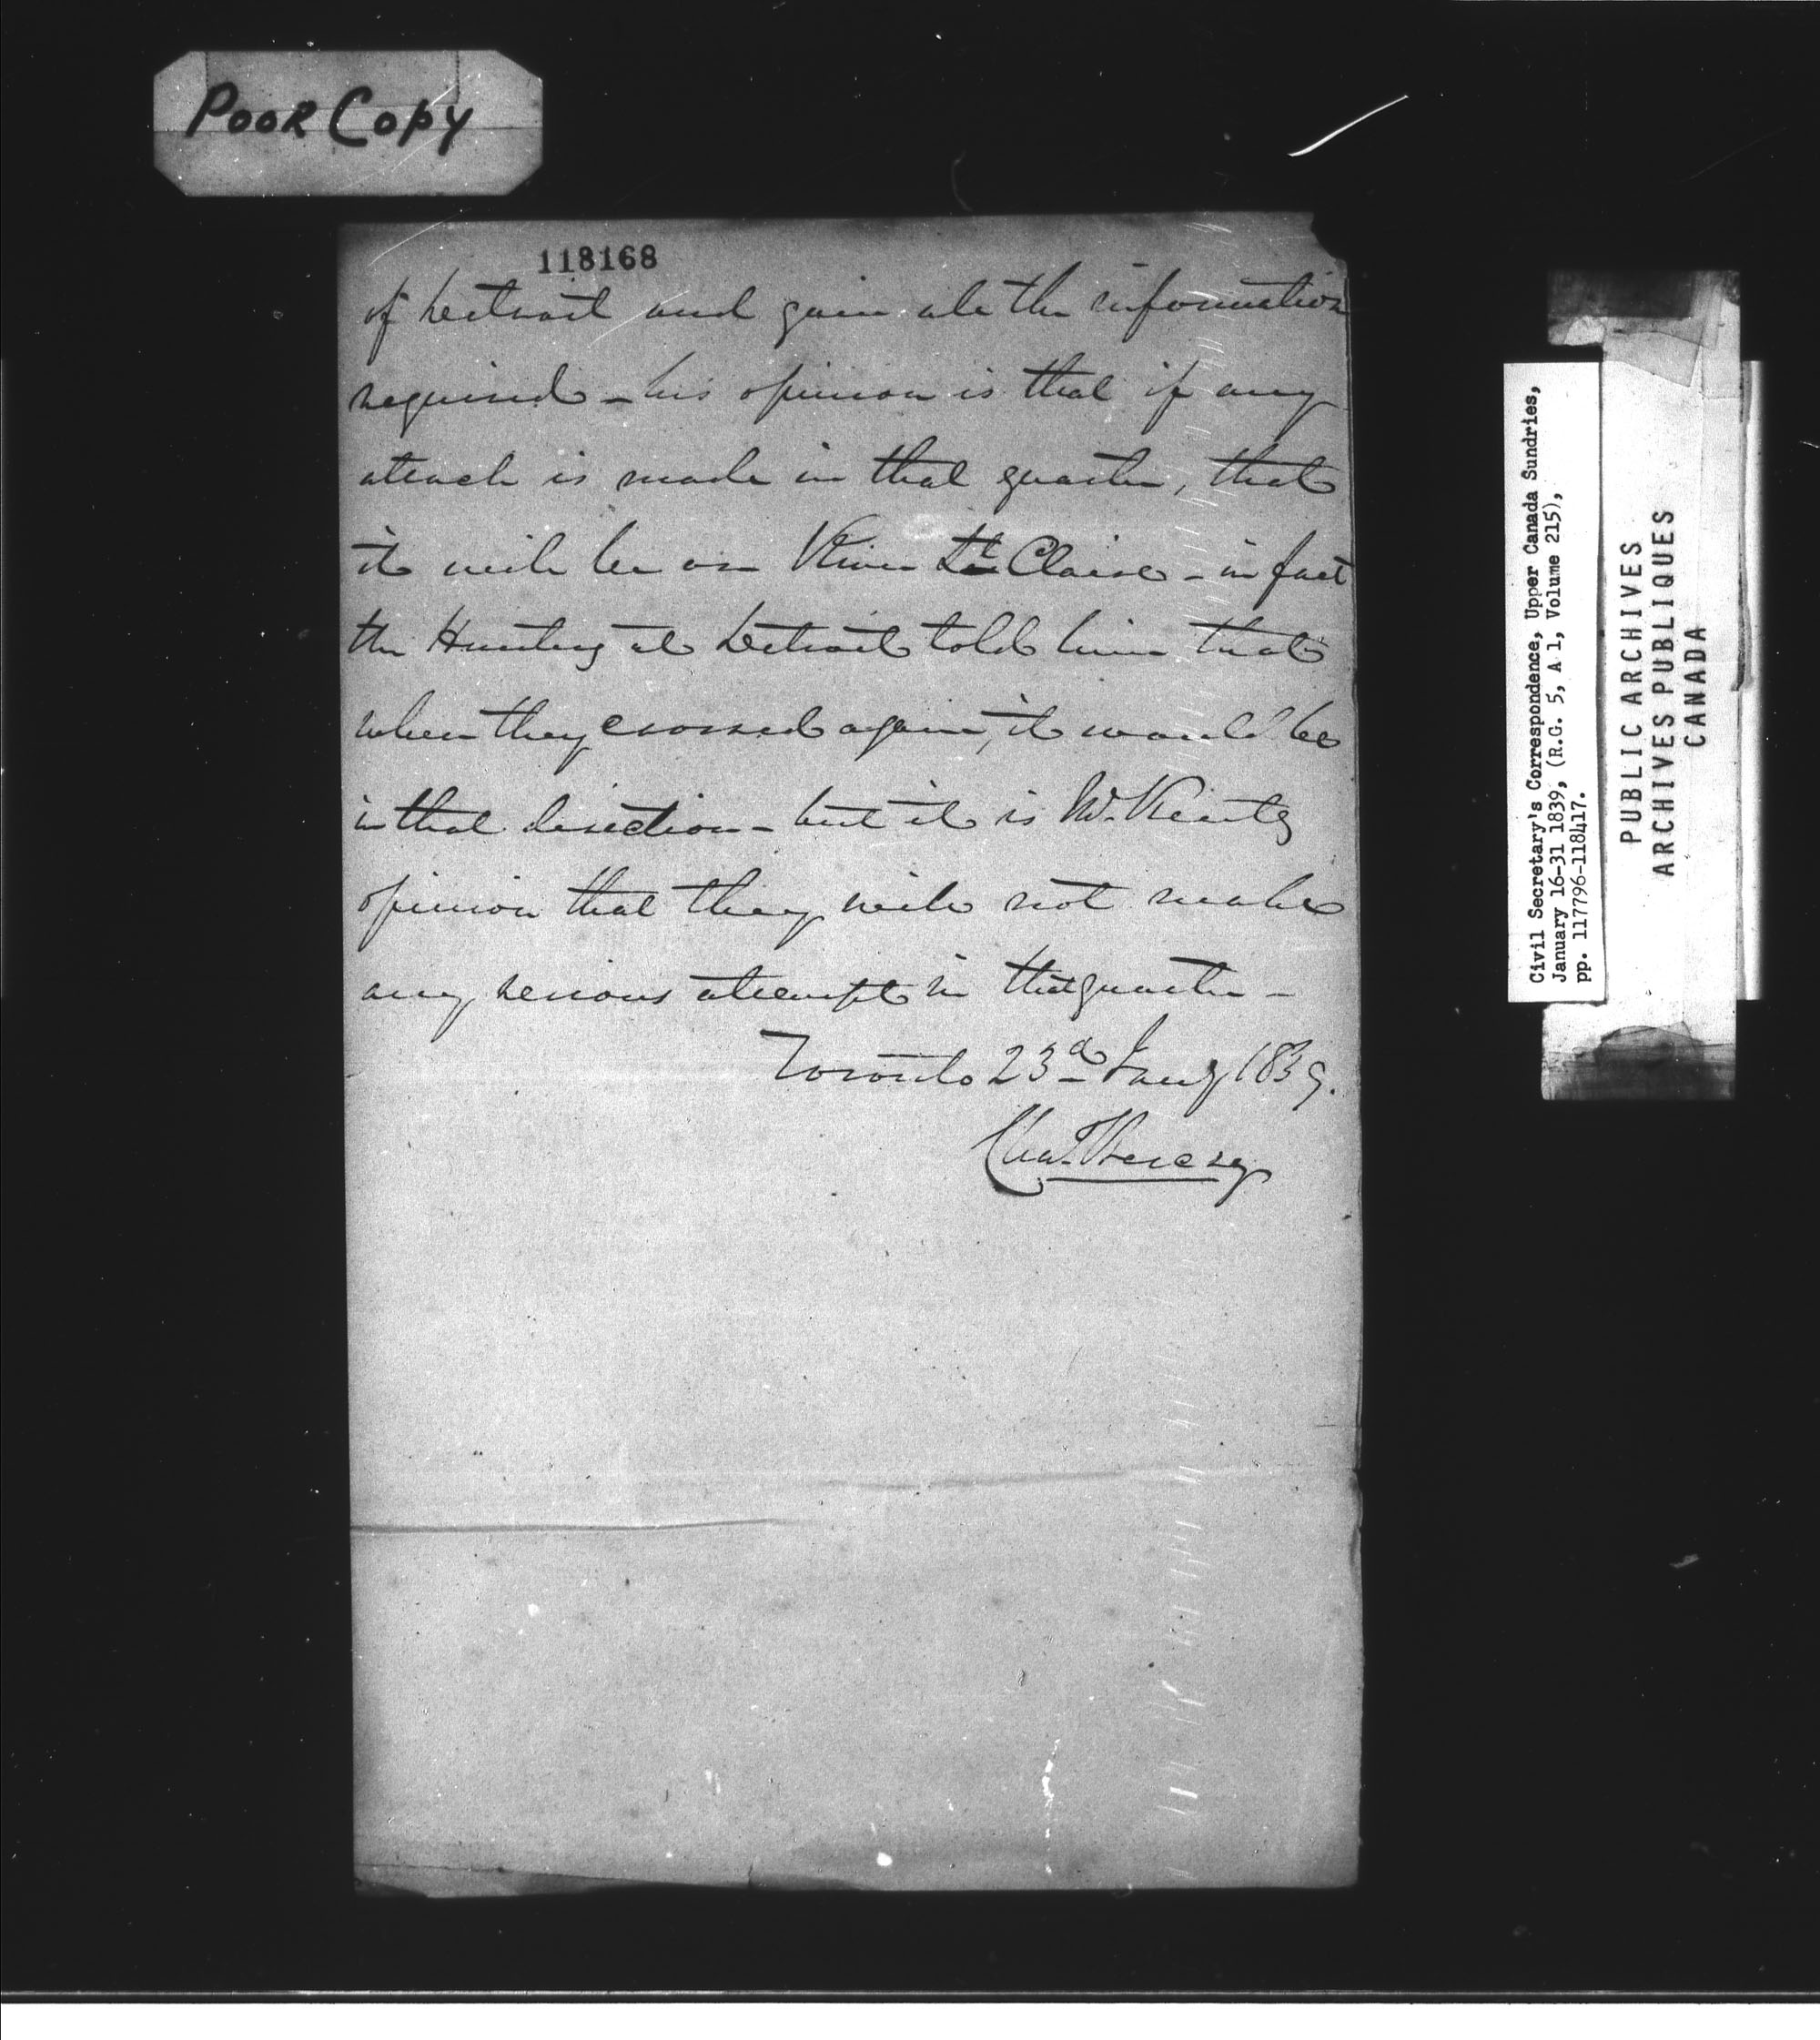 Poor Copy
118168
of Detroit and gain all the information
required - his opinion is that if any
attack is made in that quarter, that
it will be on River St Claire - in fact
the Hunters at Detroit told him that
when they crossed again, it would be
in that direction - but it is Mr.
opinion that they will not make
any serious attempt in that quarter -
Toronto 23d Jany 1839.
Chas.
Civil Secretary's Correspondence, Upper Canada Sundries,
January 16-31 1839, (R.G. 5, A 1, Volume 215),
pp. 117796-118417.
PUBLIC ARCHIVES
ARCHIVES PUBLIQUES
CANADA